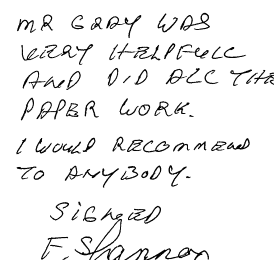 MR GRAY WAS
VERY HELPFULL
AND DID ALL THE
PAPER WORK.
I WOULD RECOMMEND
TO ANYBODY.
SIGNED
F. Shannon